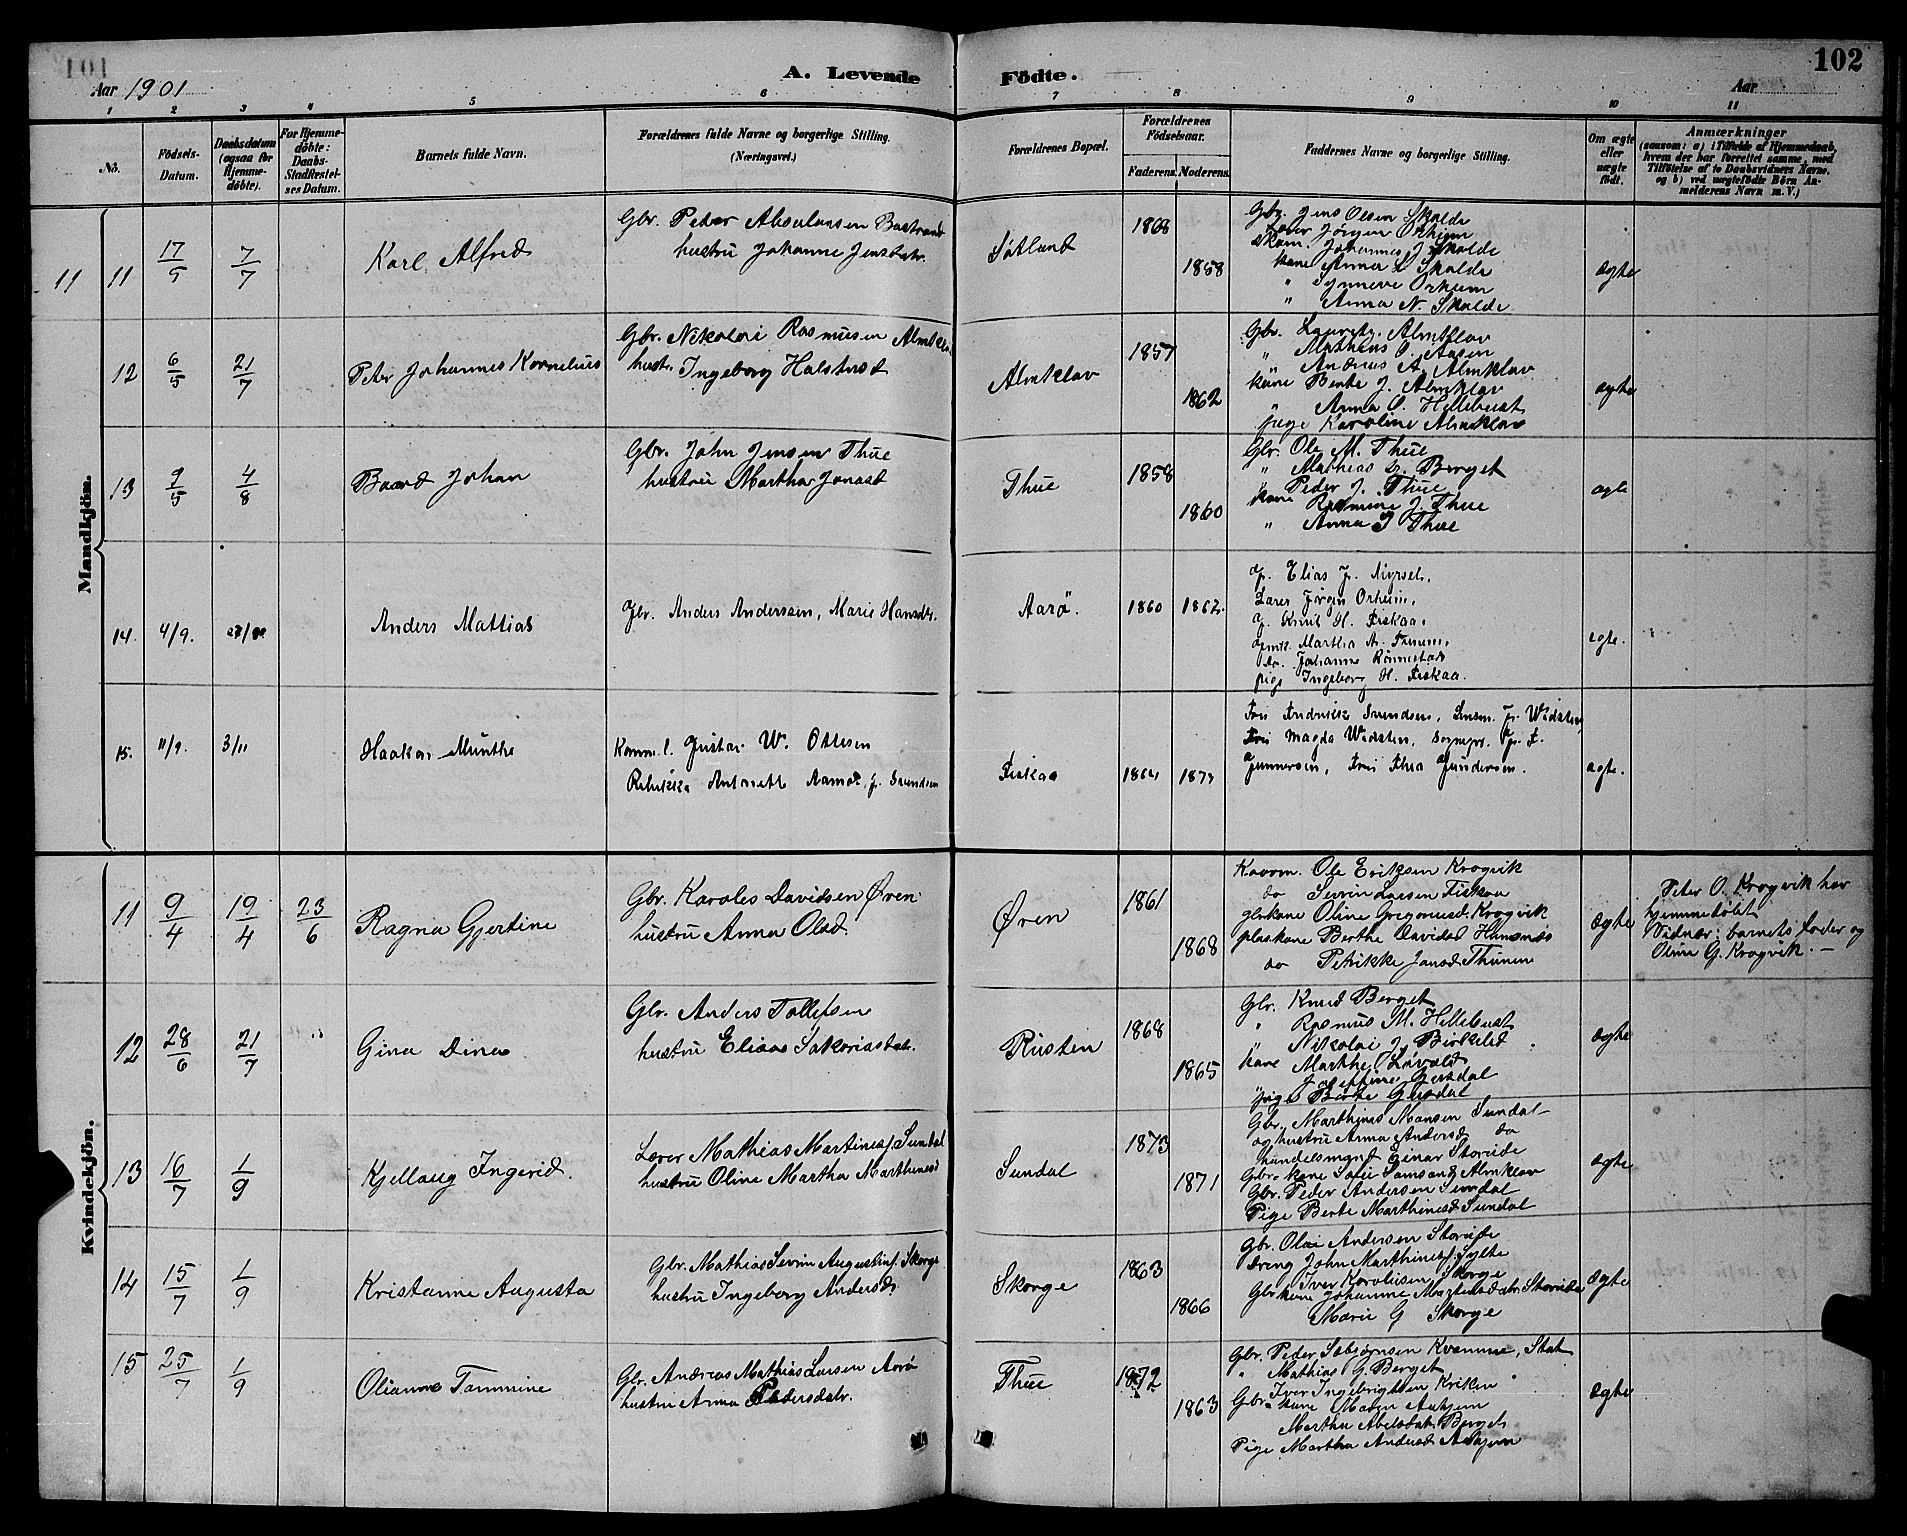 101
102
A. Levende Födte.
Aar 1901
Aar
1 2 3 4 5 6 7 8 9 10 11
No.
Födsels-Datum.
Daabsdatum (ogsaa for Hjemmedöbte).
For Hjemmedöbte: Daabs-Stadfæstelses Datum.
Barnets fulde Navn.
Forældrenes fulde Navne og borgerlige Stilling. (Næringsvei.)
Forældrenes Bopæl.
Forældrenes Födselsaar.
Faderens. Moderens.
Faddernes Navne og borgerlige Stilling.
Om ægte eller uægte födt.
Anmærkninger
(saasom: a) i Tilfælde af Hjemmedaab, hvem der har forrettet samme, med Tilföielse af to Daabsvidners Navne, og b) ved uægtefödte Börn Anmelderens Navn m. V.)
Mandkjön.
11 11 17/5 7/7
Karl Alfred
Gbr. Peder Absalonsen
hustru Johanne Jensdtr.
Søtland
1868
1858
Gbr. Jens Olsen Skalde
Lærer Jörgen Orheim
Johannes J. Skalde
kone Anna L Skalde
" Synneve Orheim
" Anna N. Skalde
ægte
12 6/5 21/7
Peter Johannes Kornelius
Gbr. Nikolai Rasmusen Almklov
hustr. Ingeborg Halstensd
Almklov
1857
1862
Gbr. Lauritz Almklov
" Mathias O. Aasen
" Andreas A. Almklov
kone Berte J. Almklov
" Anna O. Hellebust
pige Karoline Almklov
ægte
13 9/5 4/8
Baard Johan
Gbr. John Jensen Thue
hustru Martha Jonasd
Thue
1858
1860
Gbr. Ole M. Thue
" Mathias G. Berget
" Peder J. Thue
kone Rasmine J. Thue
" Anna J Thue
ægte
14. 4/9.
Anders Mattias
Gbr. Anders Anderssen, Marie Hansdtr.
Aarö.
1860 1862.
g. Elias J. Myrset,
Lærer Jörgen Orheim,
g. Knut H. Fiskaa,
Martha A.
do. Johanne Rönnestad
pige Ingeborg H. Fiskaa.
egte.
15. 11/9. 3/11
Haakon Munthe
Komm. l. Gustav W. Ottesen
Rebekka Antonette Aamot, f. Svendsen
Fiskaa
1864 1873
Frk Fredrikke Svendsen, Lensm. P. Widsten,
Fru Magda Widsten, Sognepr. G. F.
Gunnersen, Fru Thea Gundersen.
ægte.
Kvindekjön.
11 9/4 19/4 23/6
Ragna Gjertine
Gbr. Karoles Davidsen Øren
hustru Anna Olsd.
Øren
1861
1868
Kaarm. Ole Eriksen Krogvik
do Severin Larsen Fiskaa
gbrkone Oline Gregoriusd. Krogvik
plaskone Berthe Davidsd Hamsnes
do Petrikke Jonsd Thunem
ægte
Peter O. Krogvik har
hjemmedøbt
Vidner: barnets fader og
Oline G. Krogvik. —
12 28/6 21/7
Gina Dina
Gbr. Anders Tollefsen
hustru Eliane Sakariasdtr.
Rusten
1868
1865
Gbr. Knud Berget
" Rasmus M. Hellebust
" Nikolai J. Birkelid
kone Marthe Løvold
Josefine Gusdal
pige Berte Gusdal
ægte
13 16/7 1/9
Kjellaug Ingerid
Lærer Mathias Martinesf. Sundal
hustru Oline Martha Marthinesd
Sundal
1873
1871
Gbr. Marthines Monsen Sundal
og hustru Anna Andersd do
Handelsmand Einar Storeide
Gbr. kone Sofie Samsond. Almklov
Gbr. Peder Andersen Sundal
Pige Berte Marthinesd Sundal
ægte
14 15/7 1/9
Kristanne Augusta
Gbr. Mathias Severin Augustinf. Skorge
hustru Ingeborg Andersd
Skorge
1863
1866
Gbr. Olai Andersen Storeide
Dreng John Marthinesf. Sylte
Iver Karoliusen Skorge
Gbrkone Johanne Mortensdatr. Storeide
Marie G Skorge
ægte
15 25/7 1/9
Olianne Tammine
Gbr. Andreas Mathias Larsen Aarö
hustru Anna Pedersdatr.
Thue
1872
1863
Gbr. Peder Kvamme, Stat
" Mathias G. Berget
Gbr. Iver Ingebrigtsen Kriken
kone Maren Aahjem
Martha Abelsdatr. Berget
Pige Martha Andersd Aahjem
ægte